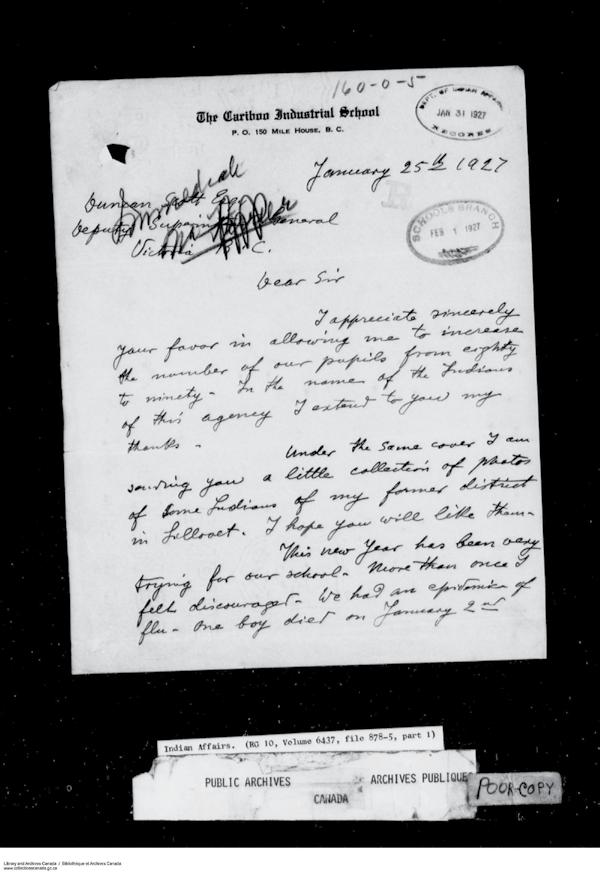 160-0-5
The Cariboo Industrial School
P. O. 150 MILE HOUSE, B. C.
DEPT. OF INDIAN AFFAIRS
JAN 31 1927
RECORDS
January 25th 1927
Duncan Scott Esq
Deputy Superintendent General
Victoria B. C.
SCHOOLS BRANCH
FEB 1 1927
Dear Sir
I appreciate sincerely
your favor in allowing me to increase
the number of our pupils from eighty
to ninety - In the name of the Indians
of this agency I extend to you my
thanks -
Under the same cover I am
sending you a little collection of photos
of some Indians of my former district
in Lillooet. I hope you will like them -
This new Year has been very
trying for our school - More than once I
felt discouraged - We had an epidemic of
flu - One boy died on January 2nd
Indian Affairs. (RG 10, Volume 6437, file 878-5, part 1)
PUBLIC ARCHIVES ARCHIVES PUBLIQUE
CANADA
POOR COPY
Library and Archives Canada / Bibliothèque et Archives Canada
www.collectionscanada.gc.ca